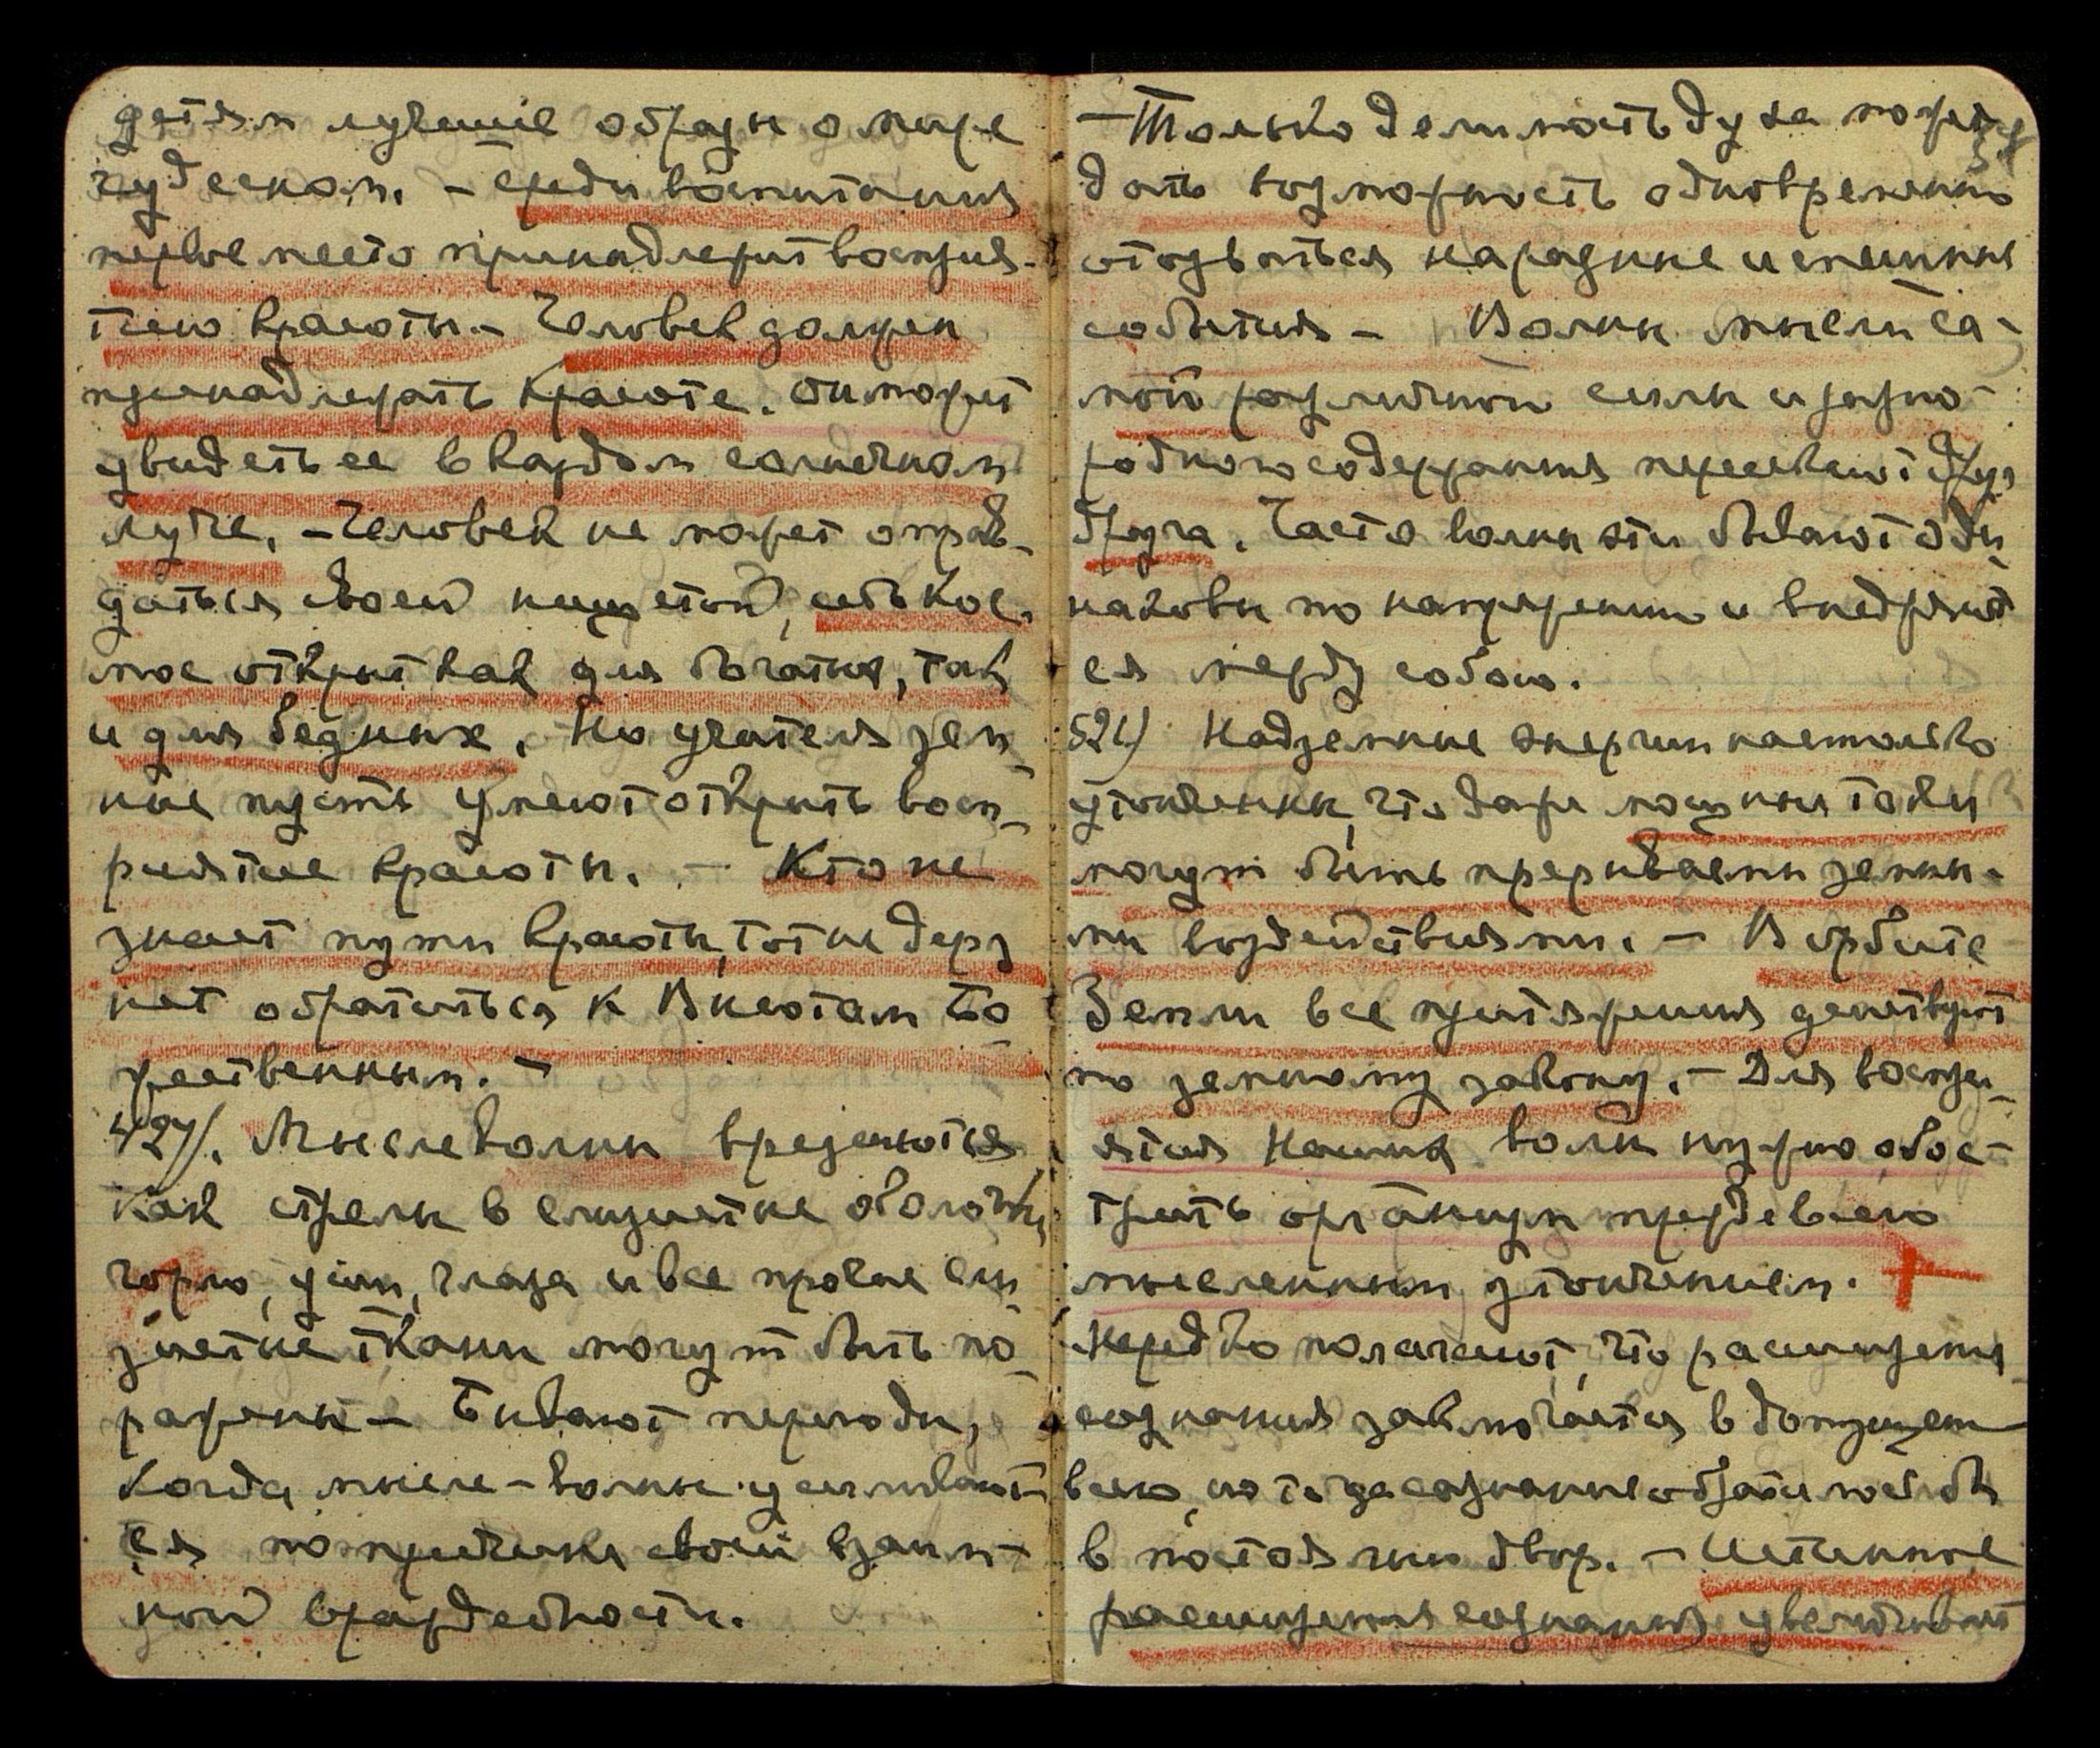 детям лучшие образы о мире
чудесном. – Среди воспитания
первое место принадлежит восприя-
тию красоты. – Человек должен
принадлежать красоте. Он может
увидеть ее в каждом солнечном
луче. – Человек не может оправ-
даться своей нищетой, ибо Кос-
мос открыт как для богатых, так
и для бедных. Но учителя зем-
ные пусть умеют открыть восп-
риятие красоты. – Кто не
знает пути красоты, тот не дерз
нет обратиться к Высотам Бо-
жественным. –
427/. Мыслеволны врезаются
как стрелы в слизистые оболочки,
горло, уши, глаза и все прочие сли-
зистые ткани могут быть по-
ражены – Бывают периоды,
когда мысле-волны усиливают-
ся по причине своей взаим-
ной враждебности.
– Только делимость духа может
дать возможность одновременно
отозваться на разные и спешные
события – Волны мысли са-
мой различной силы и разно-
родного содержания пересекают друг
друга. Часто волны эти бывают оди
наковы по напряжению и внедряют
ся между собою.
521) Надземные энергии настолько
утончены, что даже мощные токи
могут быть прерываемы земны-
ми воздействиями. – В орбите
Земли все притяжения действуют
по земному закону. – Для воспри-
ятия Наших волн нужно обос-
трить организм прежде всего
мысленным утончением.
Нередко полагают, что расширение
сознания заключается в допущении
всего, но тогда сознание обратилось бы
в постоялый двор. – Истинное
расширение сознания увеличивает